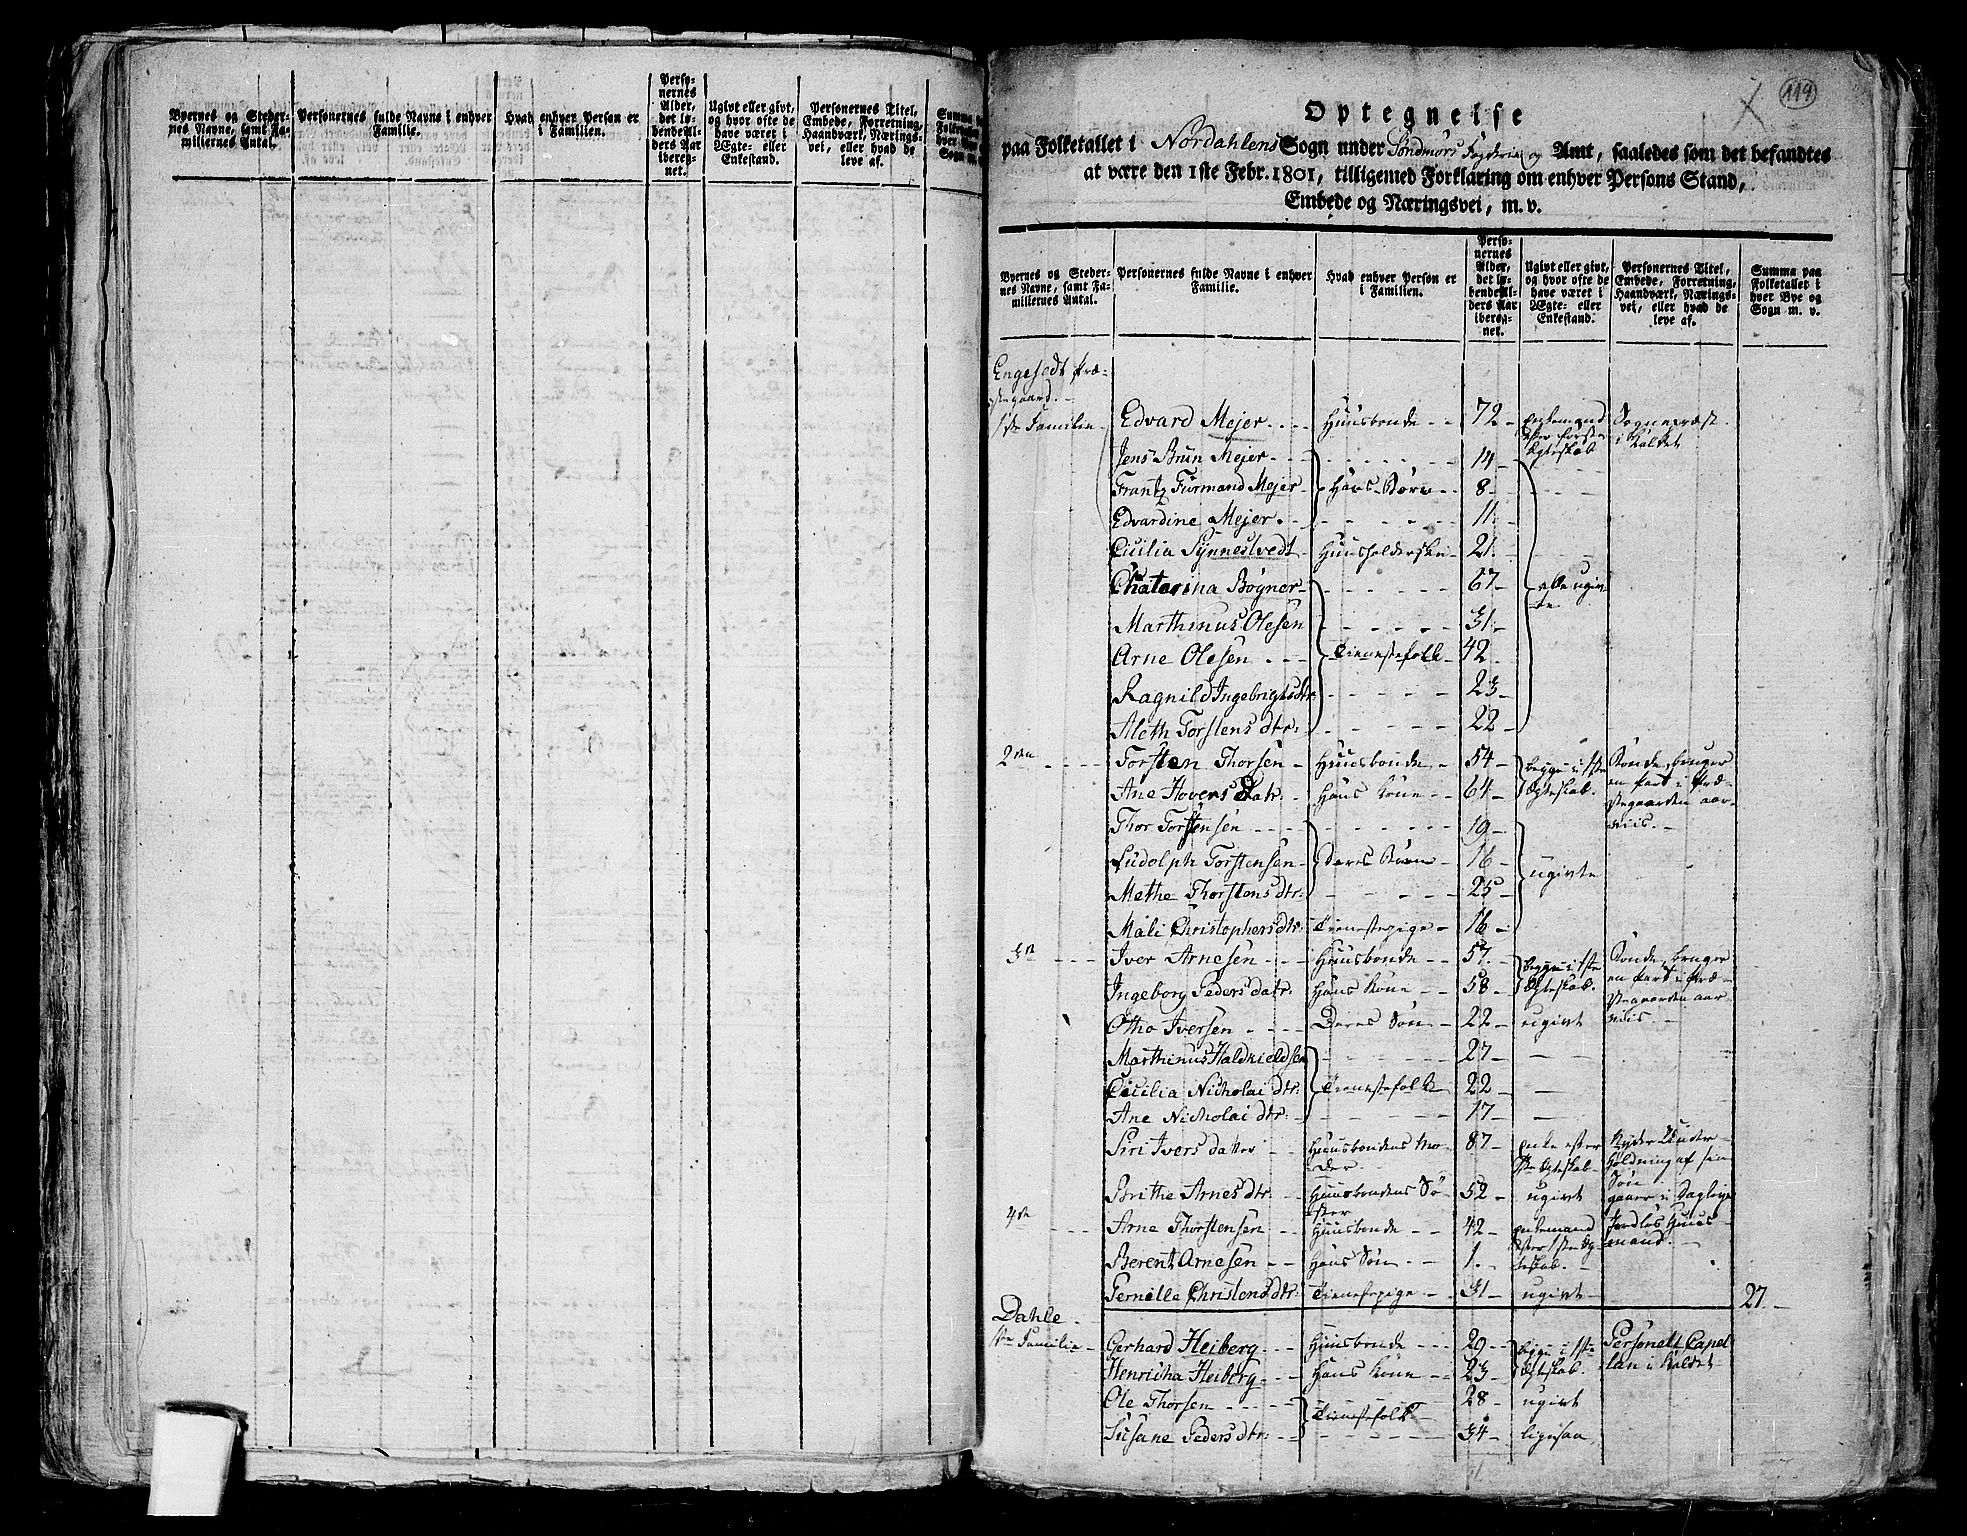 Byernes og Steder-
nes Navne, samt Fa-
miliernes Antal.
Personernes fulde Navne i enhver
Familie.
Hvad enhver Person er
i Familien.
Perso-
nernes
Alder,
det lø-
bende Al-
ders Aar
ibereg-
net.
Ugivt eller givt,
og hvor ofte de
have været i
Ægte- eller
Enkestand.
Personernes Titel,
Embede, Forretning,
Haandværk, Nærings-
vei, eller hvad de
leve af.
Summa
Folketallet
hver Bye
Sogn m.
119
Optegnelse
paa Folketallet i Nordahlens Sogn under Søndmørs Fogderie og Amt, saaledes som det befandtes
at være den 1ste Febr. 1801, tilligemed Forklaring om enhver Persons Stand,
Embede og Næringsvei, m. v.
Byernes og Steder-
nes Navne, samt Fa-
miliernes Antal.
Personernes fulde Navne i enhver
Familie.
Hvad enhver Person er
i Familien.
Perso-
nernes
Alder,
det lø-
bende Al-
ders Aar
ibereg-
net.
Ugivt eller givt,
og hvor ofte de
have været i
Ægte- eller
Enkestand.
Personernes Titel,
Embede, Forretning,
Haandværk, Nærings-
vei, eller hvad de
leve af.
Summa paa
Folketallet i
hver Bye og
Sogn m. v.
Engesædt Præ-
stegaard.
1ste Familie Edvard Mejer Huusbonde 72 Enkemand efter første Ægteskab Sognepræst i Kaldet
Jens Brun Mejer 14
Frantz Furmand Mejer Hans Børn 8
Edvardine Mejer 11
Cicilia Synnestvedt Huusholderske 21
Chatarina Bøgner 67 alle ugivte
Marthinus Olesen 31
Arne Olesen Tienestefolk 42
Ragnild Ingebrigtsdtr: 23
Aleth Torstensdtr: 22
2den Torsten Thorsen Huusbonde 54 begge i 1ste Ægteskab. Bonde, bruger en Part i Præstegaarden aarviis.
Ane Hovers Datr: Hans Kone 64
Thor Torstensen 19
Ludolph Torstensen Deres Børn 16 ugivte
Methe Thorstensdtr: 25
Mali Christophersdtr: Tienestepige 16
3de Iver Arnesen Huusbonde 57 begge i 1ste Ægteskab. Bonde, bruger en Part i Præstegaarden aarviis.
Ingeborg Peders datr: Hans Kone 58
Otho Iversen Deres Søn 22 ugivt
Marthinus Haldrieldsen 27
Cicilia Nicholai dtr: Tienestefolk 22
Ane Nicholai dtr: 17
Siri Ivers datter Huusbondens Moder 87 Enke efter 1ste Ægteskab Nyder Underholdning af sin Søn
Brithe Arnesdtr: Huusbondens Søster 52 ugivt gaaer i Dagleje
4de Arne Thorstensen Huusbonde 42 Enkemand efter 1ste Ægteskab. Jordløs Huusmand.
Berent Arnesen Hans Søn 1.
Pernille Christensdtr: Tienestepige 31 ugivt 27
Dahle
1ste Familie Gerhard Heiberg Huusbonde 29 begge i 1ste Ægteskab. Personel Capellan i Kaldet
Henricha Heiberg Hans Kone 23
Ole Thorsen Tienestefolk 28 ugivt
Susane Pedersdtr: 34 ligesaa